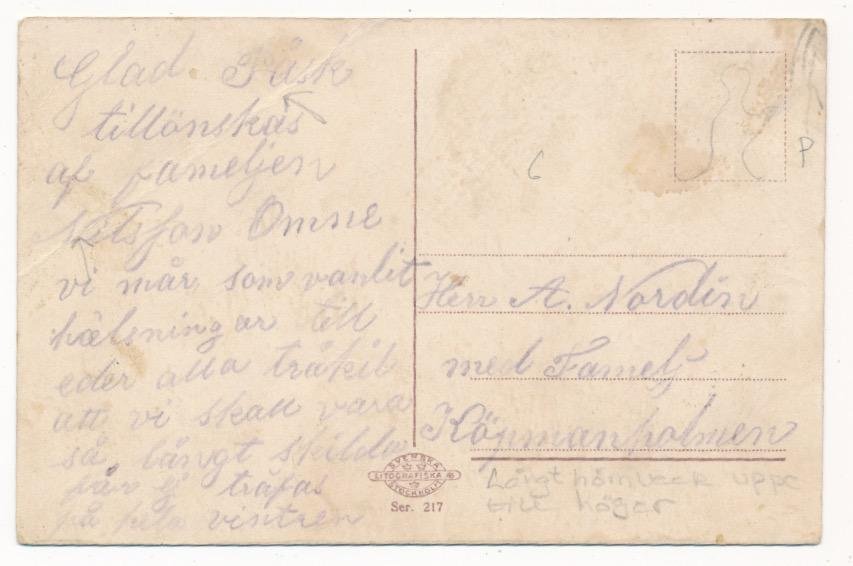 Glad Påsk
tillönskas
af fameljen
Nilsson Omne
vi mår som vanlit
hälsningar till
eder alla tråkit
att vi skall vara
så långt skilda
får ej träfas
på hela vintren
G
P
Herr A. Nordin
med Famelj
Köpmanholmen
SVENSKA
LITOGRAFISKA AB
STOCKHOLM
Ser. 217
Långt hörnveck uppe
till höger